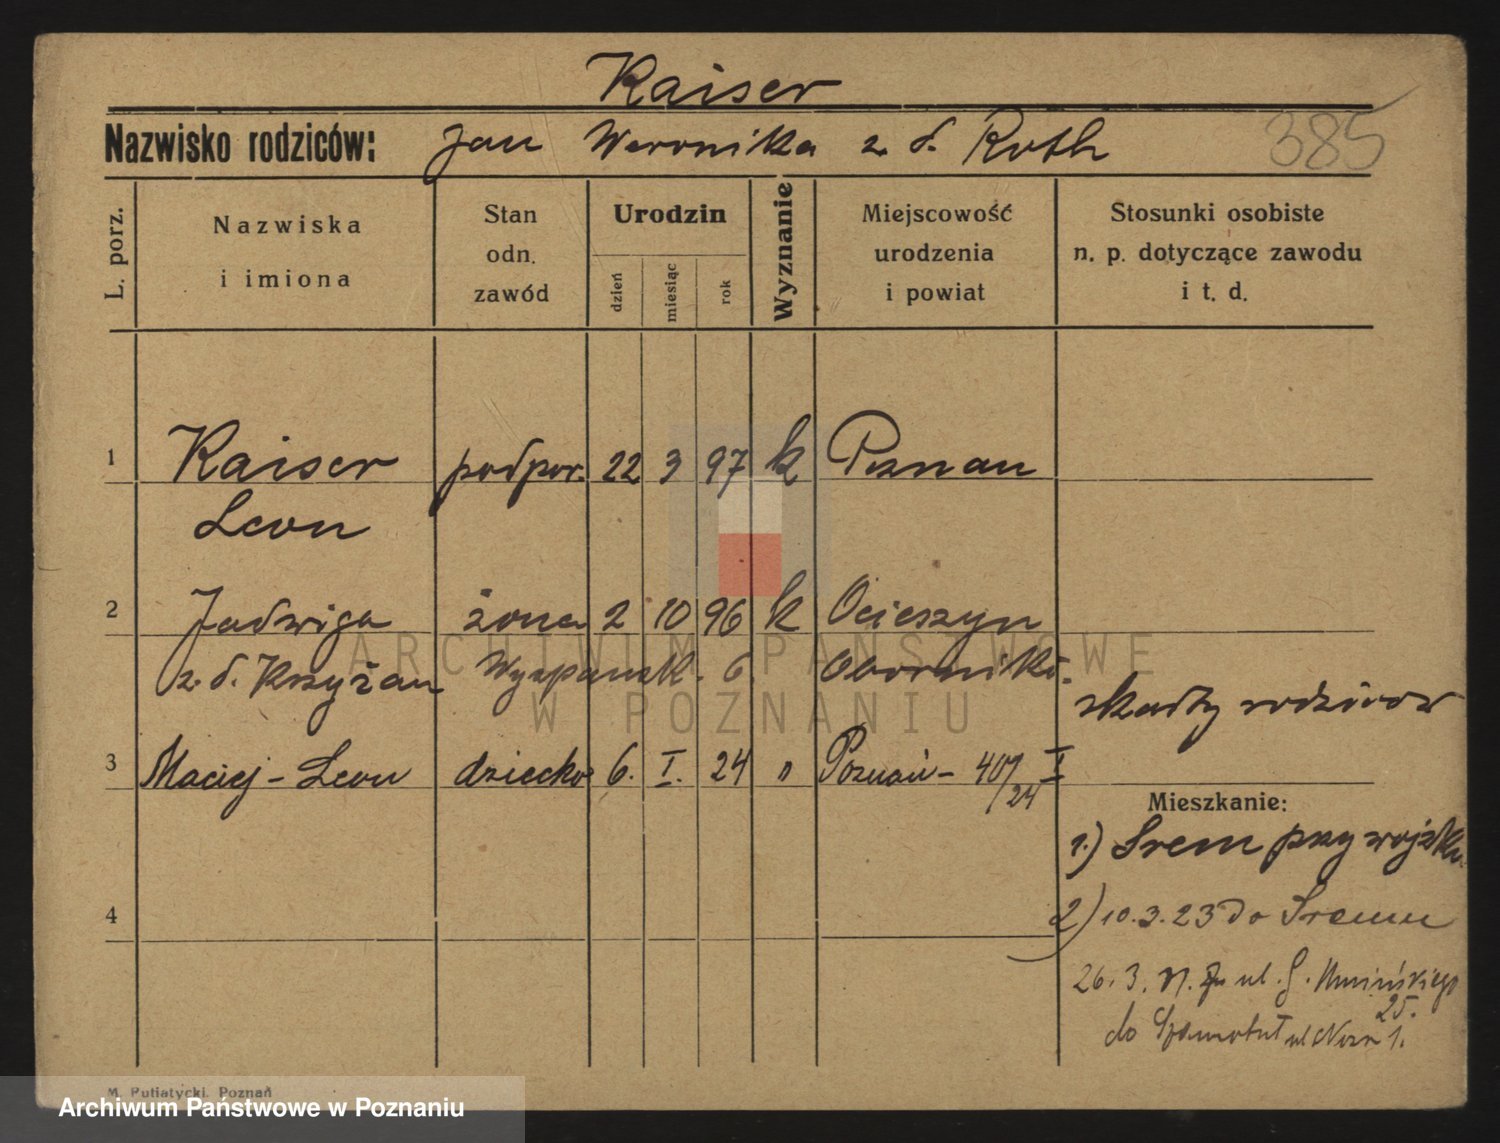 Kaiser
Nazwisko rodziców: Jan Weronika z d. Roth
385
L. porz.
Nazwiska
i imiona
Stan
odn.
zawód
Urodzin
dzień
miesiąc
rok
Wyznanie
Miejscowość
urodzenia
i powiat
Stosunki osobiste
n. p. dotyczące zawodu
i t. d.
1 Kaiser podpor. 22 3 97 k Poznan
Leon
2 Jadwiga żona 2 10 96 k Ocieszyn
z. d. Krzyżan Oborniki.
z karty rodziców
3 Maciej - Leon dziecko 6. I. 24 " Poznań - 409/24 I
Mieszkanie:
1.) Srem przy wojsku
2) 10.3.23 do Sremu
4
26. 3. ul. G. Umińskiego
25.
do Szamotuł ul 1.
ARCHIWUM PAŃSTWOWE
W POZNANIU
M. Putiatycki, Poznań
Archiwum Państwowe w Poznaniu